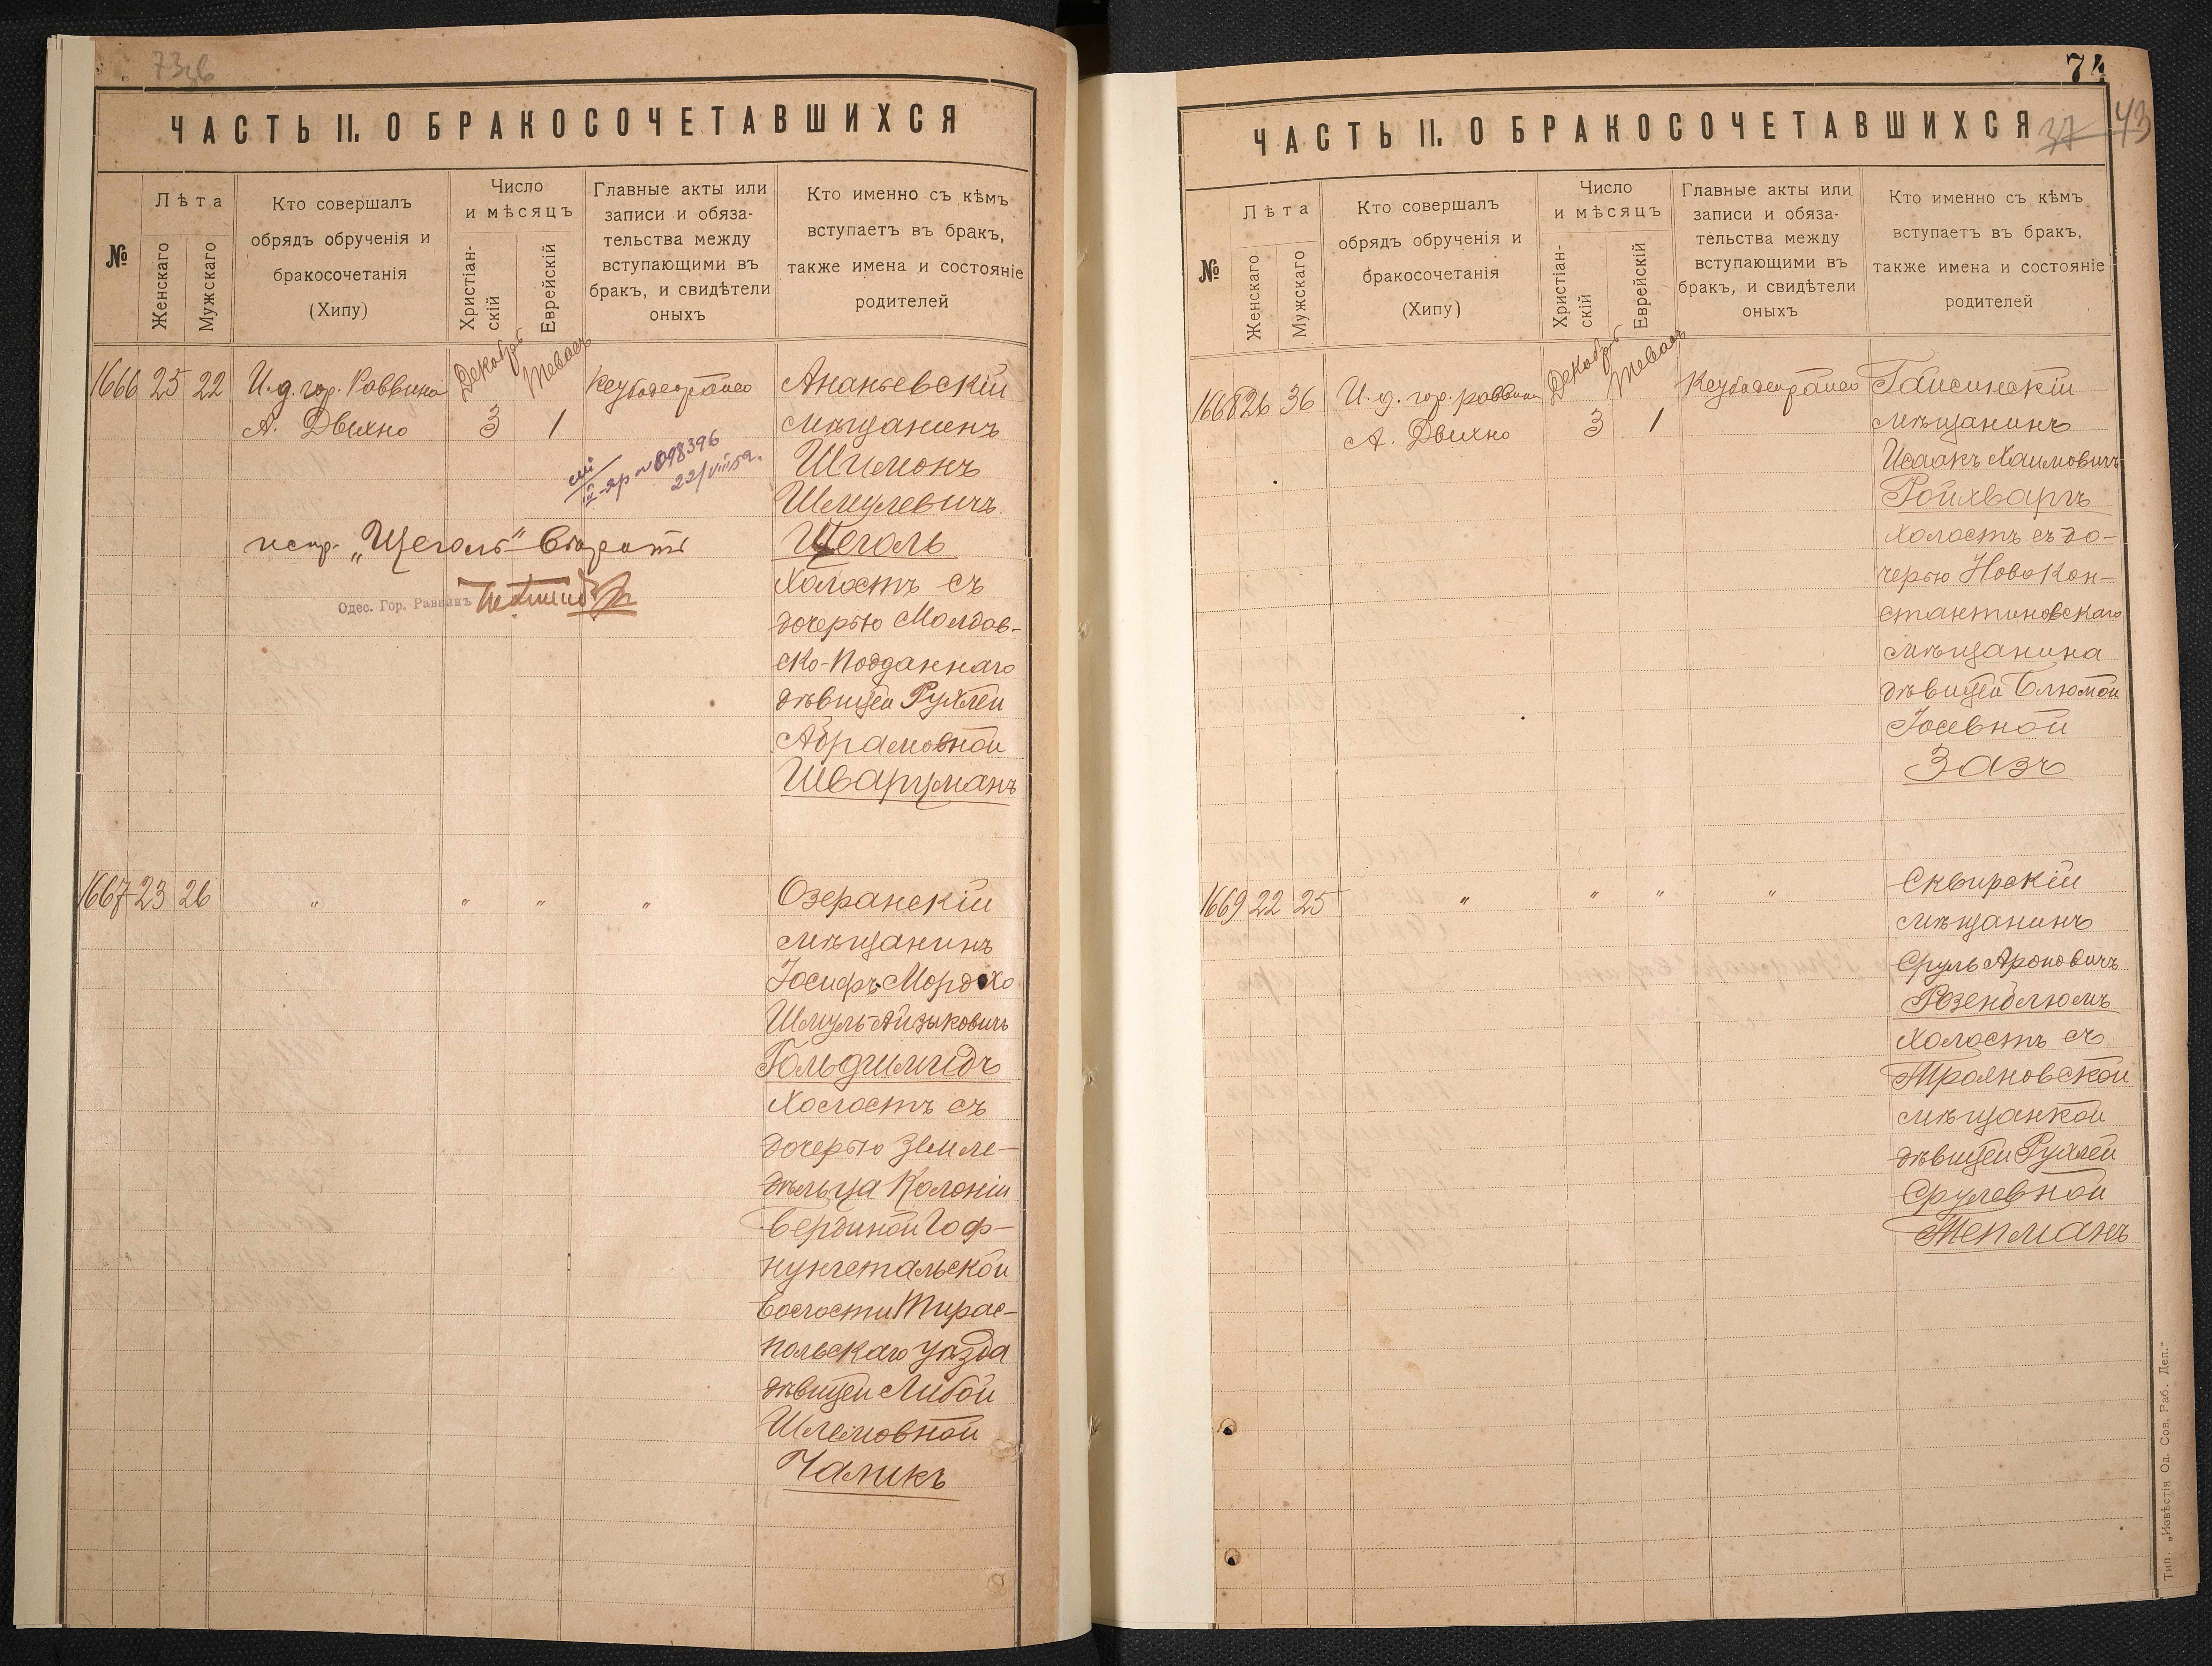 73об
ЧАСТЬ II. О БРАКОСОЧЕТАВШИХСЯ
№
Лѣта
Женскаго
Мужскаго
Кто совершалъ
обрядъ обрученія и
бракосочетанія
(Хипу)
Число
и мѣсяцъ
Христіан-
скій
Еврейскій
Главные акты или
записи и обяза-
тельства между
вступающими въ
бракъ, и свидѣтели
оныхъ
Кто именно съ кѣмъ
вступаетъ въ бракъ,
также имена и состояніе
родителей
1666 25 22
И.д. гор. Раввина
А. Двихно
Декабрь
3
Тевасъ
1
Ананьевскій
мѣщанинъ
Шимонъ
Шмулевичъ
Щеголь
Холостъ съ
дочерью Молдав-
ско-подданнаго
дѣвицей Рухлей
Абрамовной
Шварцманъ
№ 098396
22/VIII 59 г.
испр. „Щеголь“ Вѣрить
Одес. Гор. Раввинъ
1667 23 26
" " " "
Озеранскій
мѣщанинъ
Іосифъ-Мордхо
Шмуль-Айзыковичъ
Гольдшмидъ
Холостъ съ
дочерью Земле-
дѣльца Колоніи
Гоф-
нунгстальской
волости Тирас-
польскаго уѣзда
дѣвицей Либой
Шлемовной
Чаликъ
74
37 43
ЧАСТЬ II. О БРАКОСОЧЕТАВШИХСЯ
№
Лѣта
Женскаго
Мужскаго
Кто совершалъ
обрядъ обрученія и
бракосочетанія
(Хипу)
Число
и мѣсяцъ
Христіан-
скій
Еврейскій
Главные акты или
записи и обяза-
тельства между
вступающими въ
бракъ, и свидѣтели
оныхъ
Кто именно съ кѣмъ
вступаетъ въ бракъ,
также имена и состояніе
родителей
1668 26 36
И.д. гор. раввина
А. Двихно
Декабрь
3
Тевасъ
1
Гайсинскій
мѣщанинъ
Исаакъ Хаимовичъ
Ройхваргъ
Холостъ съ до-
черью Новокон-
стантиновскаго
мѣщанина
дѣвицей Блюмой
Іосевной
Зазъ
1669 22 25
" " " "
Сквирскій
мѣщанинъ
Сруль Ароновичъ
Розенблюмъ
Холостъ съ
Трояновской
мѣщанкой
дѣвицей Рухлей
Срулевной
Тепманъ
Тип. „Извѣстія Од. Сов. Раб. Деп.“